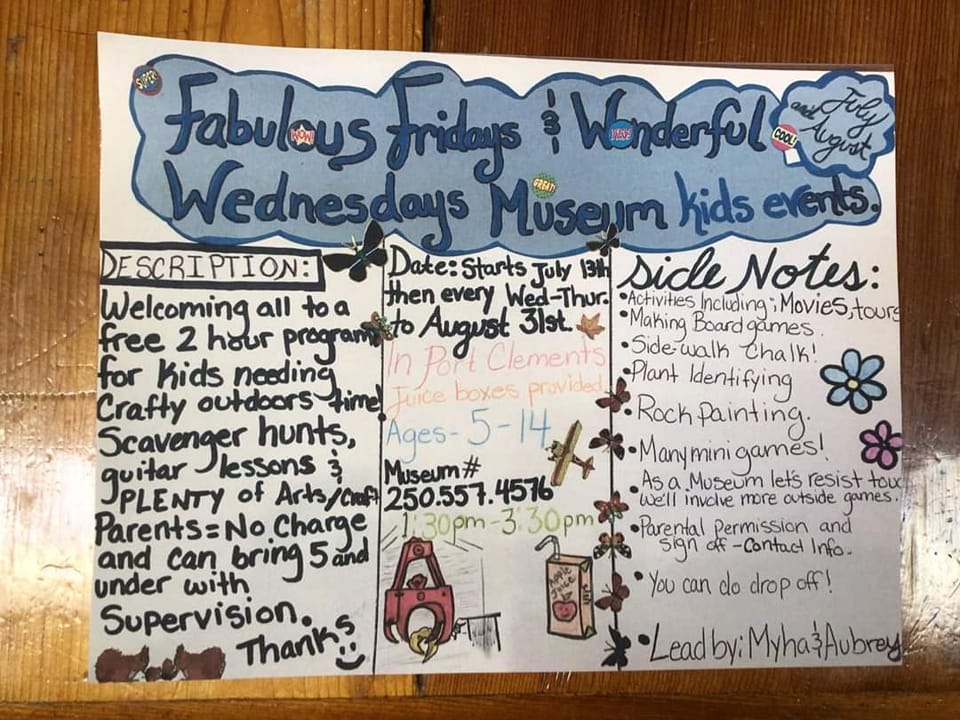 SUPER!
Fabulous Fridays & Wonderful
WOW!
YES!
COOL!
July
and August
Wednesdays Museum kids events.
GREAT!
DESCRIPTION:
Welcoming all to a
free 2 hour program
for kids needing
Crafty outdoors time!
Scavenger hunts,
guitar lessons &
PLENTY of Arts/Craft
Parents = No Charge
and can bring 5 and
under with
Supervision.
Thanks
Date: Starts July 13th
then every Wed-Thur.
to August 31st.
In Port Clements
Juice boxes provided.
Ages - 5-14
Museum #
250.557.4576
1:30pm-3:30pm
Apple
Juice
Side Notes:
•Activities Including; Movies, tours
•Making Board games.
•Side-walk Chalk!
•Plant Identifying
•Rock painting.
•Many mini games!
•As a Museum let's resist tou
we'll involve more outside games.
•Parental permission and
sign off - Contact Info.
•You can do drop off!
•Lead by; Myha & Aubrey